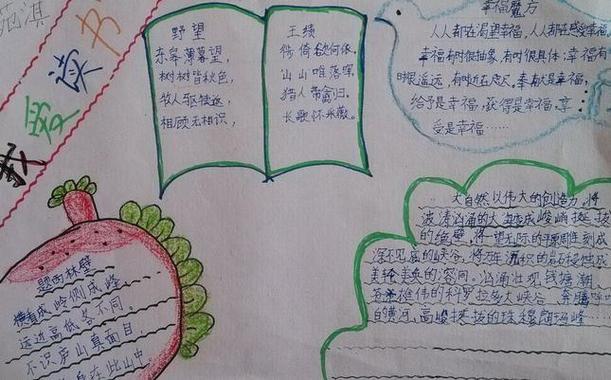 我爱读书
野望
东皋薄暮望,
树树皆秋色,
牧人驱犊返,
相顾无相识,
王绩
徙倚欲何依。
山山唯落晖
猎人带禽归。
长歌怀采薇。
幸福魔方
人人都在渴望幸福,人人都在感受幸福
幸福有时很抽象,有时很具体;幸福有
时很遥远,有时近在咫尺。奉献是幸福,
给予是幸福,获得是幸福,享
受是幸福……
题西林壁
横看成岭侧成峰
远近高低各不同。
不识庐山真面目,
身在此山中
大自然以伟大的创造力,将
波涛汹涌的大海变成峻峭挺拔
的绝壁,将一望无际的平原雕刻成
深不见底的峡谷,将万年沉积的岩石
美轮美奂的溶洞。汹涌壮观钱塘潮
雄伟的科罗拉多大峡谷、奔腾
的黄河,高峻挺拔的珠穆朗玛峰